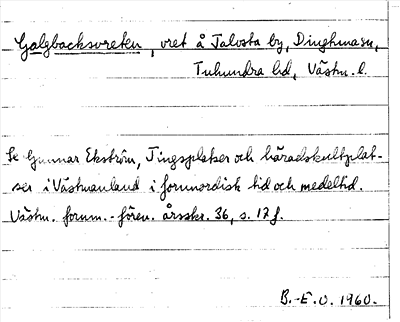 Galgbacksvreten, vret å Jalosta by, Dinghuasn,
Tuhundra hd, Västm. l.
Se Gunnar Ekström, Tingsplatser och häradskultplat-
ser i Västmanland i fornnordisk tid och medeltid.
Västm. fornm.-fören. årsskr. 36, s. 12 f.
B.-E.O. 1960.